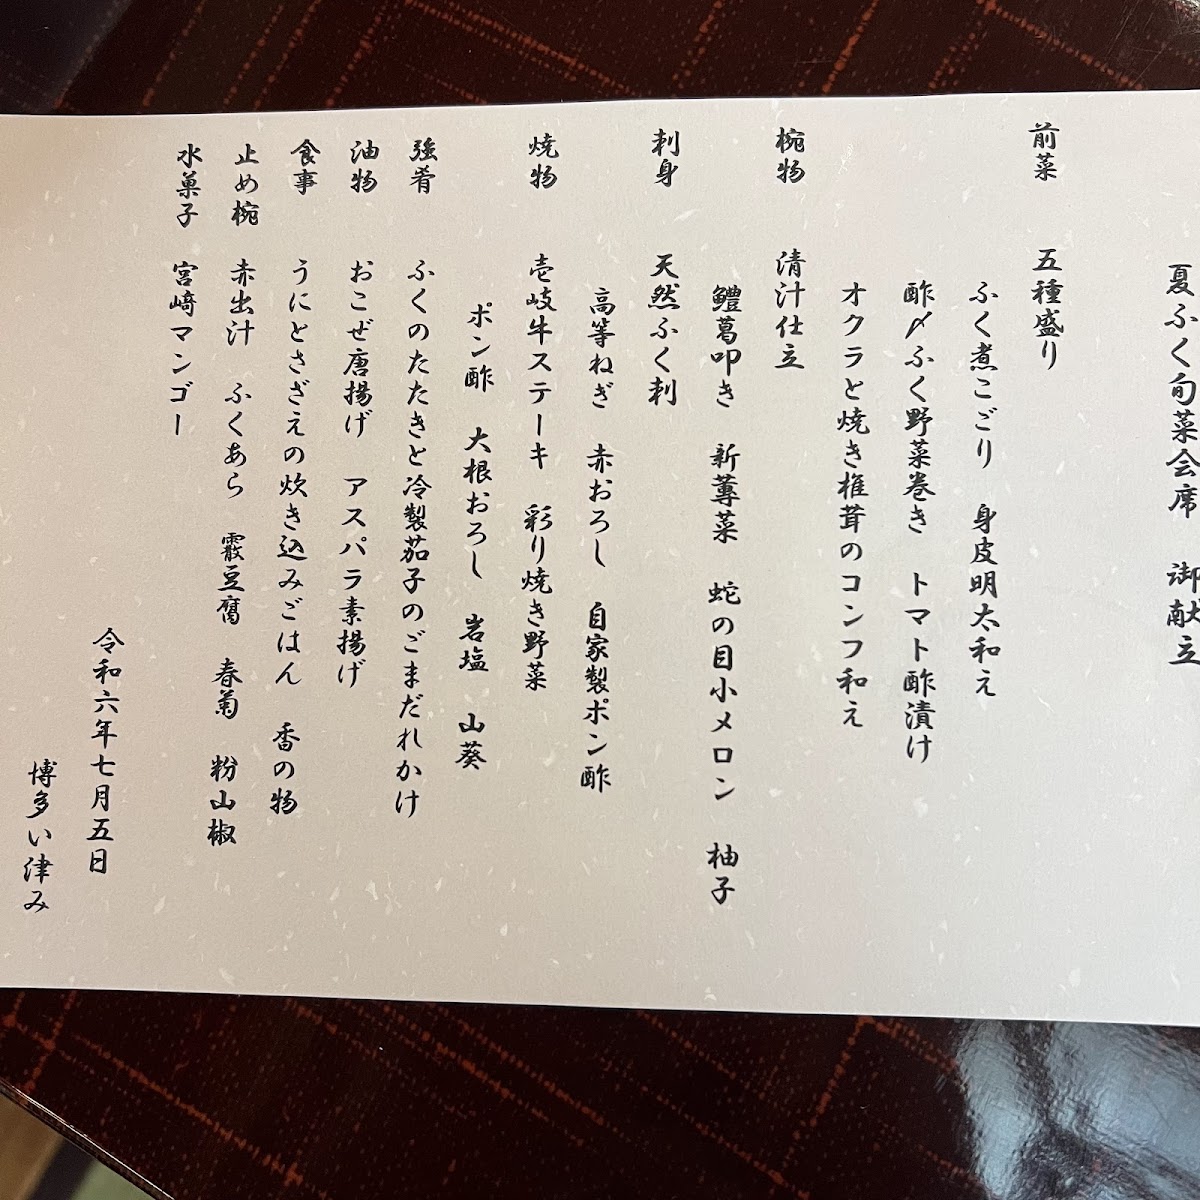 夏ふく旬菜会席　御献立
前菜　五種盛り
ふく煮こごり　身皮明太和え
酢〆ふく野菜巻き　トマト酢漬け
オクラと焼き椎茸のコンフ和え
椀物　清汁仕立
鱧葛叩き　新蓴菜　蛇の目小メロン　柚子
刺身　天然ふく刺
高等ねぎ　赤おろし　自家製ポン酢
焼物　壱岐牛ステーキ　彩り焼き野菜
ポン酢　大根おろし　岩塩　山葵
強肴　ふくのたたきと冷製茄子のごまだれかけ
油物　おこぜ唐揚げ　アスパラ素揚げ
食事　うにとさざえの炊き込みごはん　香の物
止め椀　赤出汁　ふくあら　霰豆腐　春菊　粉山椒
水菓子　宮﨑マンゴー
令和六年七月五日
博多い津み